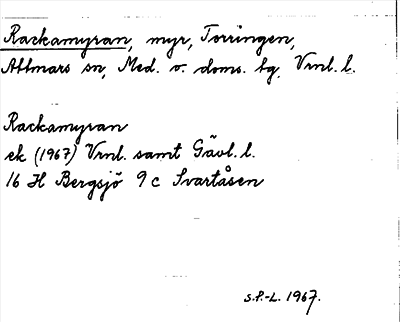 Rackamyran, myr, Torringen,
Attmars sn, Med. v. doms. tg, Vrnl. l.
Rackamyran
ek (1967) Vrnl. samt Gävl. l.
16 H Bergsjö 9 c Svartåsen
S.P.-L. 1967.